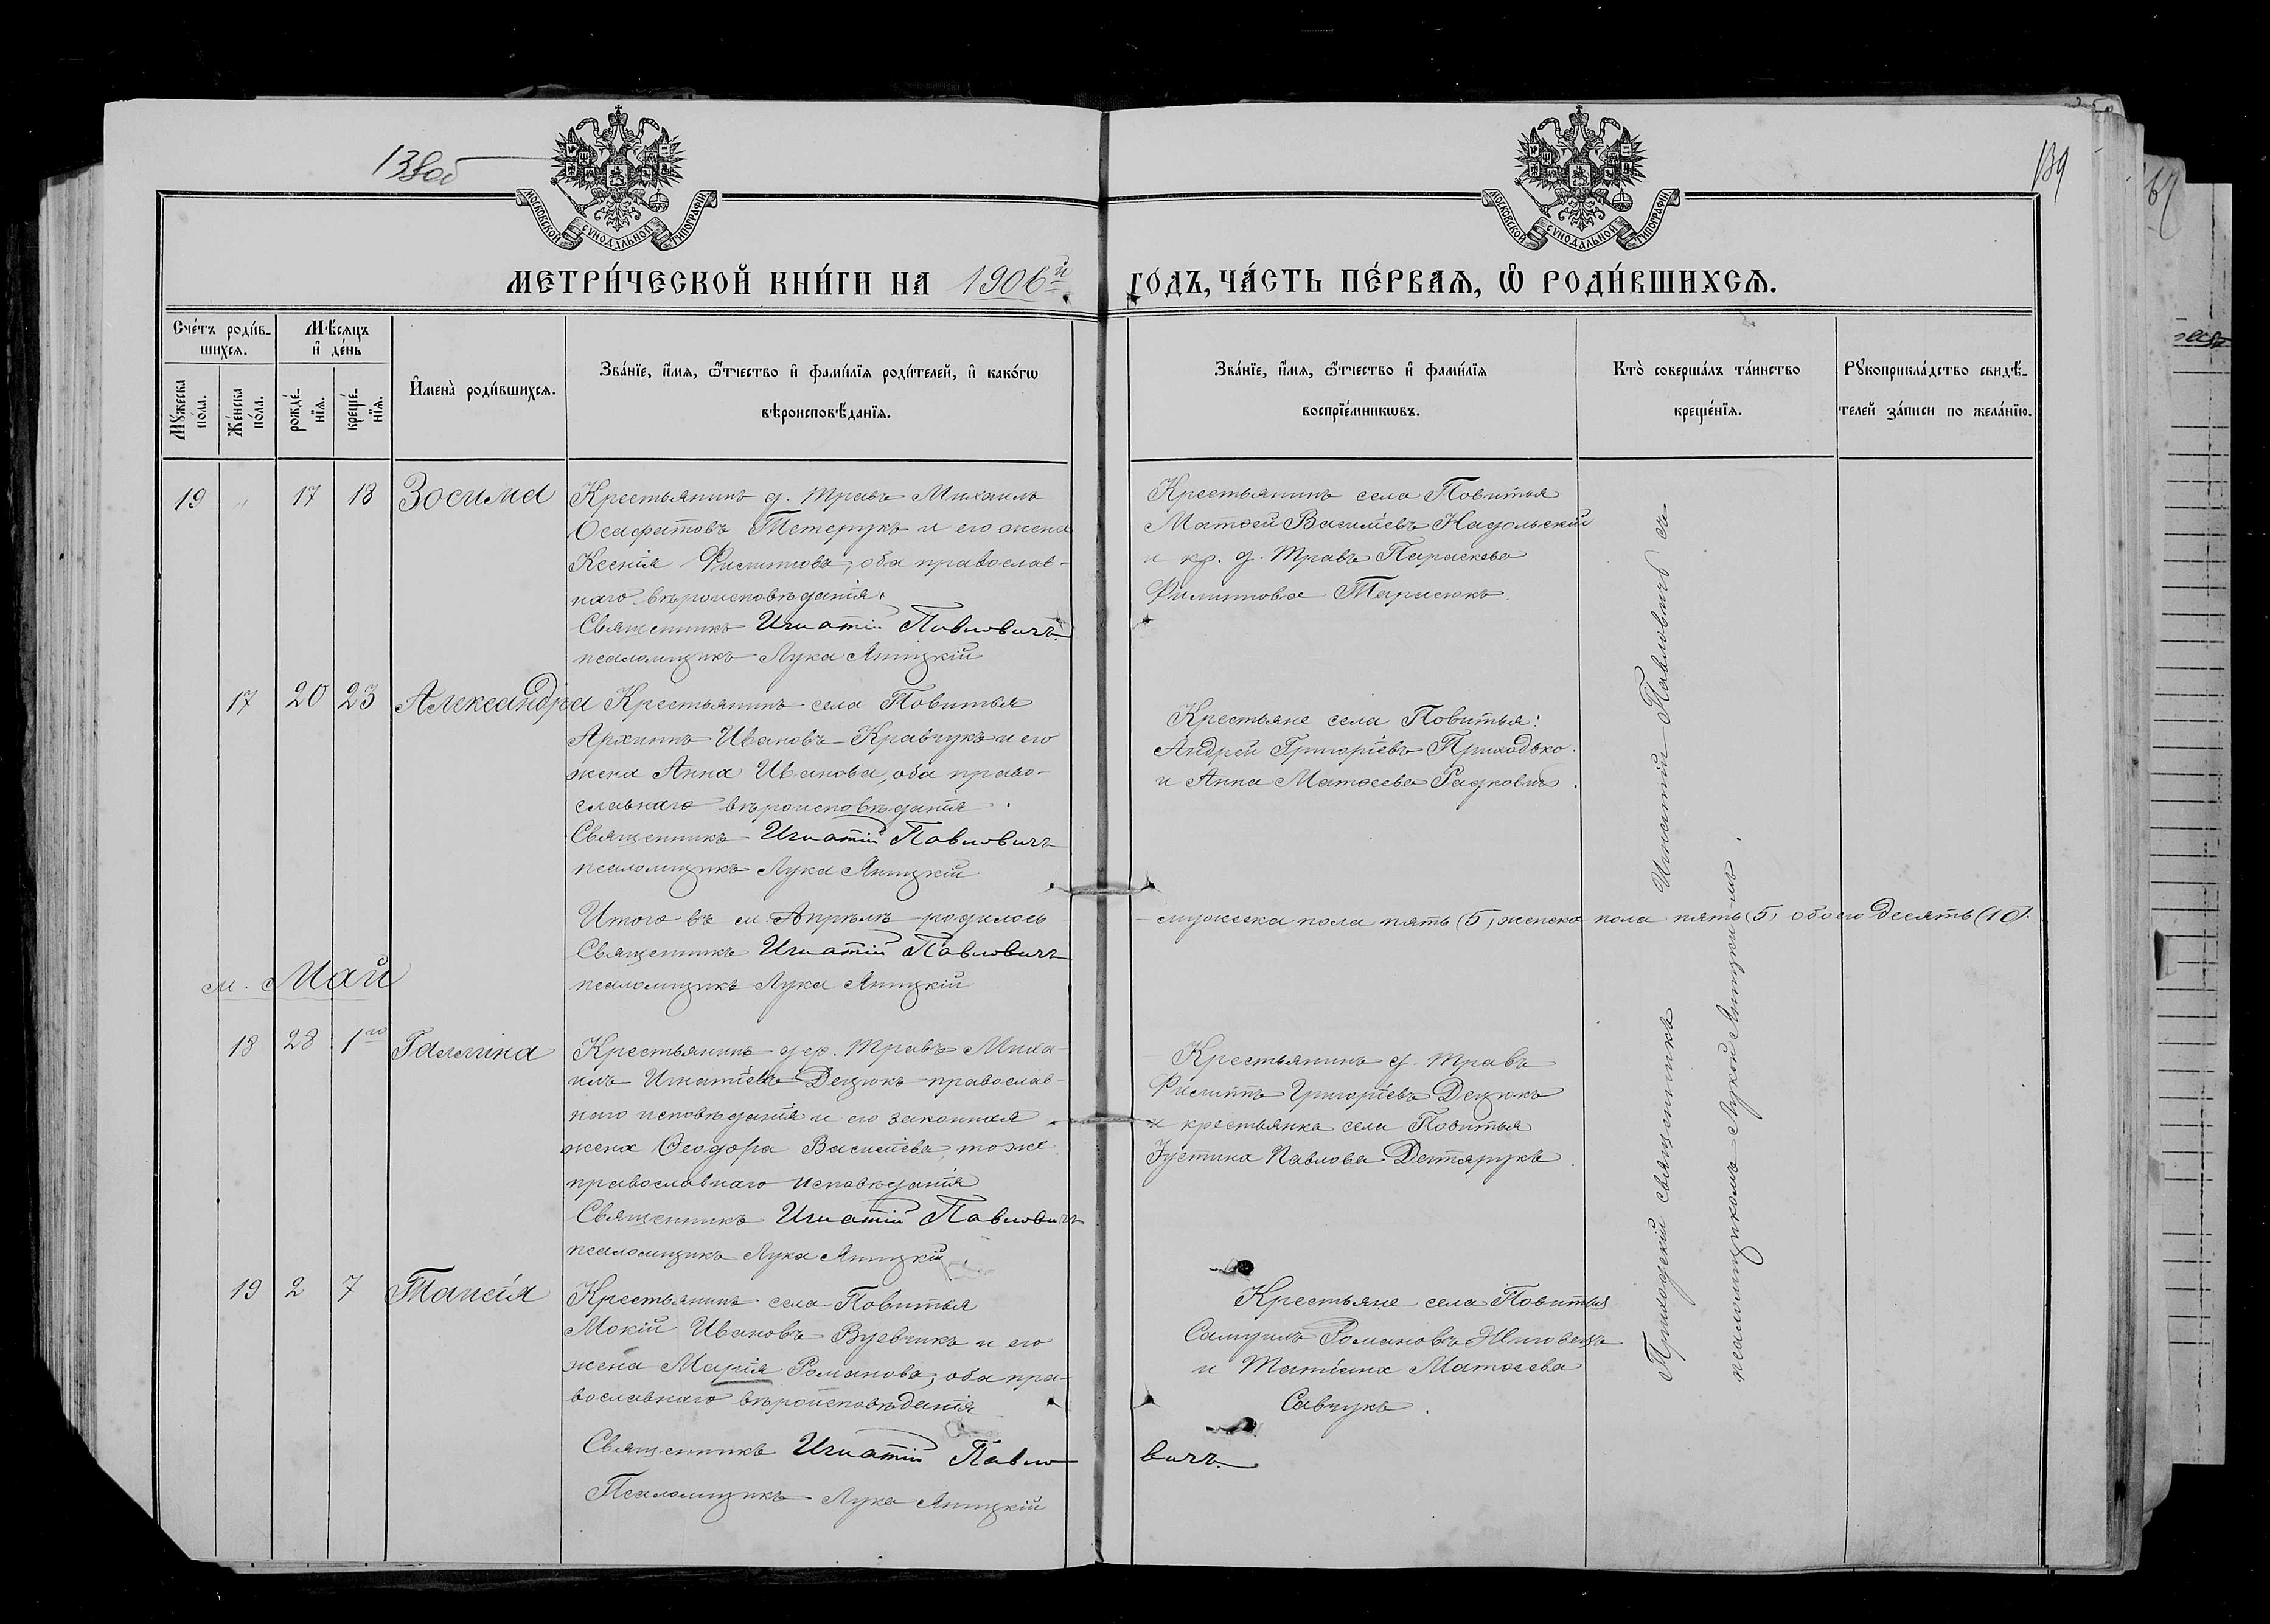 138об
139
МОСКОВСКОЙ СУНОДАЛЬНОЙ ТИПОГРАФІИ
МОСКОВСКОЙ СУНОДАЛЬНОЙ ТИПОГРАФІИ
МЕТРИ́ЧЕСКОЙ КНИ́ГИ НА 1906й
ГО́ДЪ, ЧА́СТЬ ПЕ́РВАѦ, Ѡ҆ РОДИ́ВШИХСѦ.
Сче́тъ роди́в-
шихсѧ.
Мѣ́сѧцъ
и҆ де́нь
Мꙋ́жеска
по́ла.
Же́нска
по́ла.
рожде́-
нїѧ.
креще́-
нїѧ.
И҆мена̀ роди́вшихсѧ.
Зва́нїе, и҆́мѧ, ѻ҆́тчество и҆ фами́лїѧ роди́телей, и҆ како́гѡ
вѣроисповѣ́данїѧ.
Зва́нїе, и҆́мѧ, ѻ҆́тчество и҆ фами́лїѧ
воспрїе́мникѡвъ.
Кто̀ соверша́лъ та́инство
креще́нїѧ.
Рꙋкоприкла́дство свидѣ́-
телей за́писи по жела́нїю.
19 " 17 18 Зосима
Крестьянинъ д. Травъ Михаилъ
Осафатовъ Тетерукъ и его жена
Ксенія Филиппова, оба православ-
наго вѣроисповѣданія.
Священникъ Игнатій Павловичъ
псаломщикъ Лука Яницкій
Крестьянинъ села Повитья
Матѳей Василіевъ Надольскій
и кр. д. Травъ Параскева
Филиппова Тарасюкъ.
17 20 23 Александра
Крестьянинъ села Повитья
Архипъ Ивановъ Кравчукъ и его
жена Анна Иванова, оба право-
славнаго вѣроисповѣданія.
Священникъ Игнатій Павловичъ
псаломщикъ Лука Яницкій
Крестьяне села Повитья:
Андрей Григоріевъ Приходько
и Анна Матѳеева Радковичъ.
Итого въ м. Апрѣлѣ родилось
мужеска пола пять (5), женска пола пять (5) обоего десять (10).
Священникъ Игнатій Павловичъ
псаломщикъ Лука Яницкій
м. Май
18 28 1го Галлина
Крестьянинъ дер. Травъ Миха-
илъ Игнатіевъ Децюкъ православ-
наго исповѣданія и его законная
жена Ѳеодора Василіева, тоже
православнаго исповѣданія
Священникъ Игнатій Павловичъ
псаломщикъ Лука Яницкій
Крестьянинъ д. Травъ
Филиппъ Григоріевъ Децюкъ
и крестьянка села Повитья
Іустина Павлова Дегтярукъ.
19 2 7 Таисія
Крестьянинъ села Повитья
Мокій Ивановъ Вуевчикъ и его
жена Марія Романова, оба пра-
вославнаго вѣроисповѣданія
Священникъ Игнатій Павло-
вичъ.
Псаломщикъ Лука Яницкій
Крестьяне села Повитья
Самуилъ Романовъ Жиговецъ
и Татіана Матѳеева
Савчукъ.
Приходскій священникъ Игнатій Павловичъ съ
псаломщикомъ Лукой Яницкимъ.